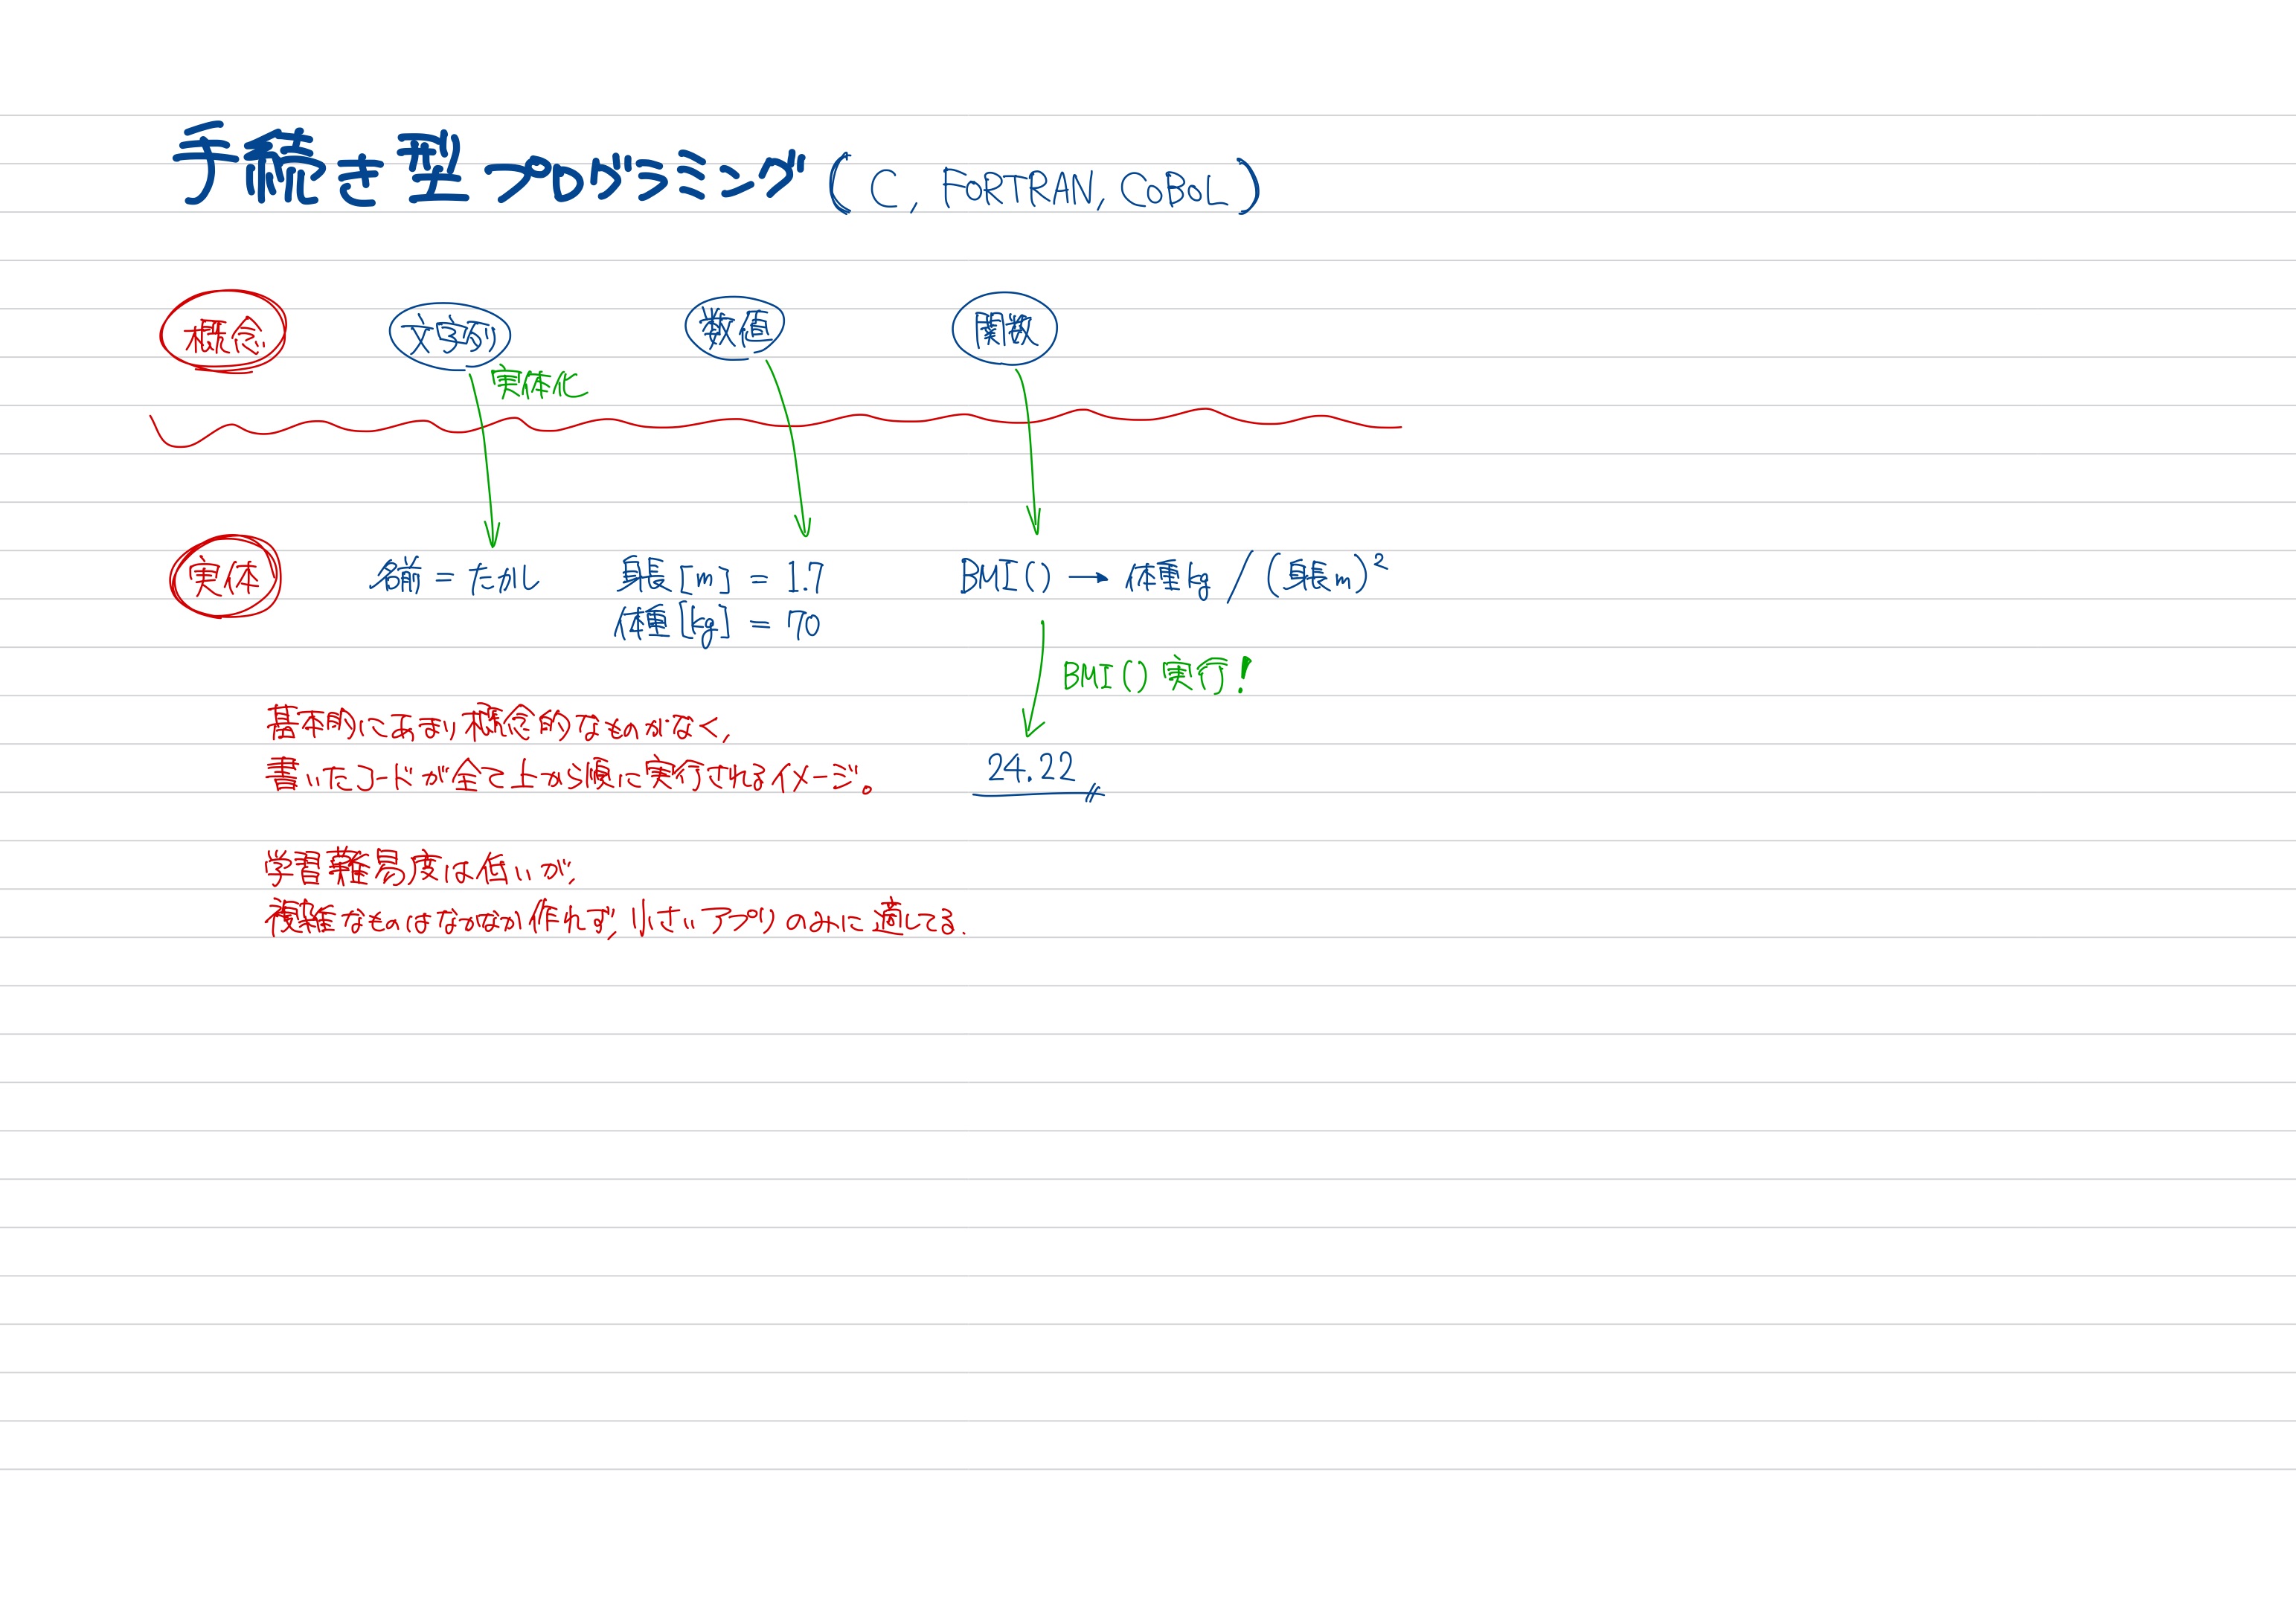 手続き型プログラミング (C, FORTRAN, COBOL)
概念 文字列 数値 関数
実体化
実体 名前 = たかし 身長[m] = 1.7 BMI() → 体重kg / (身長m)²
体重[kg] = 70
BMI() 実行!
基本的にあまり概念的なものがなく,
書いたコードが全て上から順に実行されるイメージ。
24.22
学習難易度は低いが,
複雑なものはなかなか作れず, 小さいアプリのみに適してる.